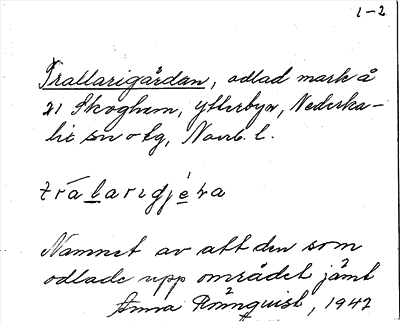 1-2
Trallarigårdan, odlad mark å
21 Skoghem, Ytterbyn, Nederka-
lix sn o tg, Norrb. l.
trá l arıgj e ɂa
Namnet av att den som
odlade upp området jämt
Anna Rönnquist, 1942